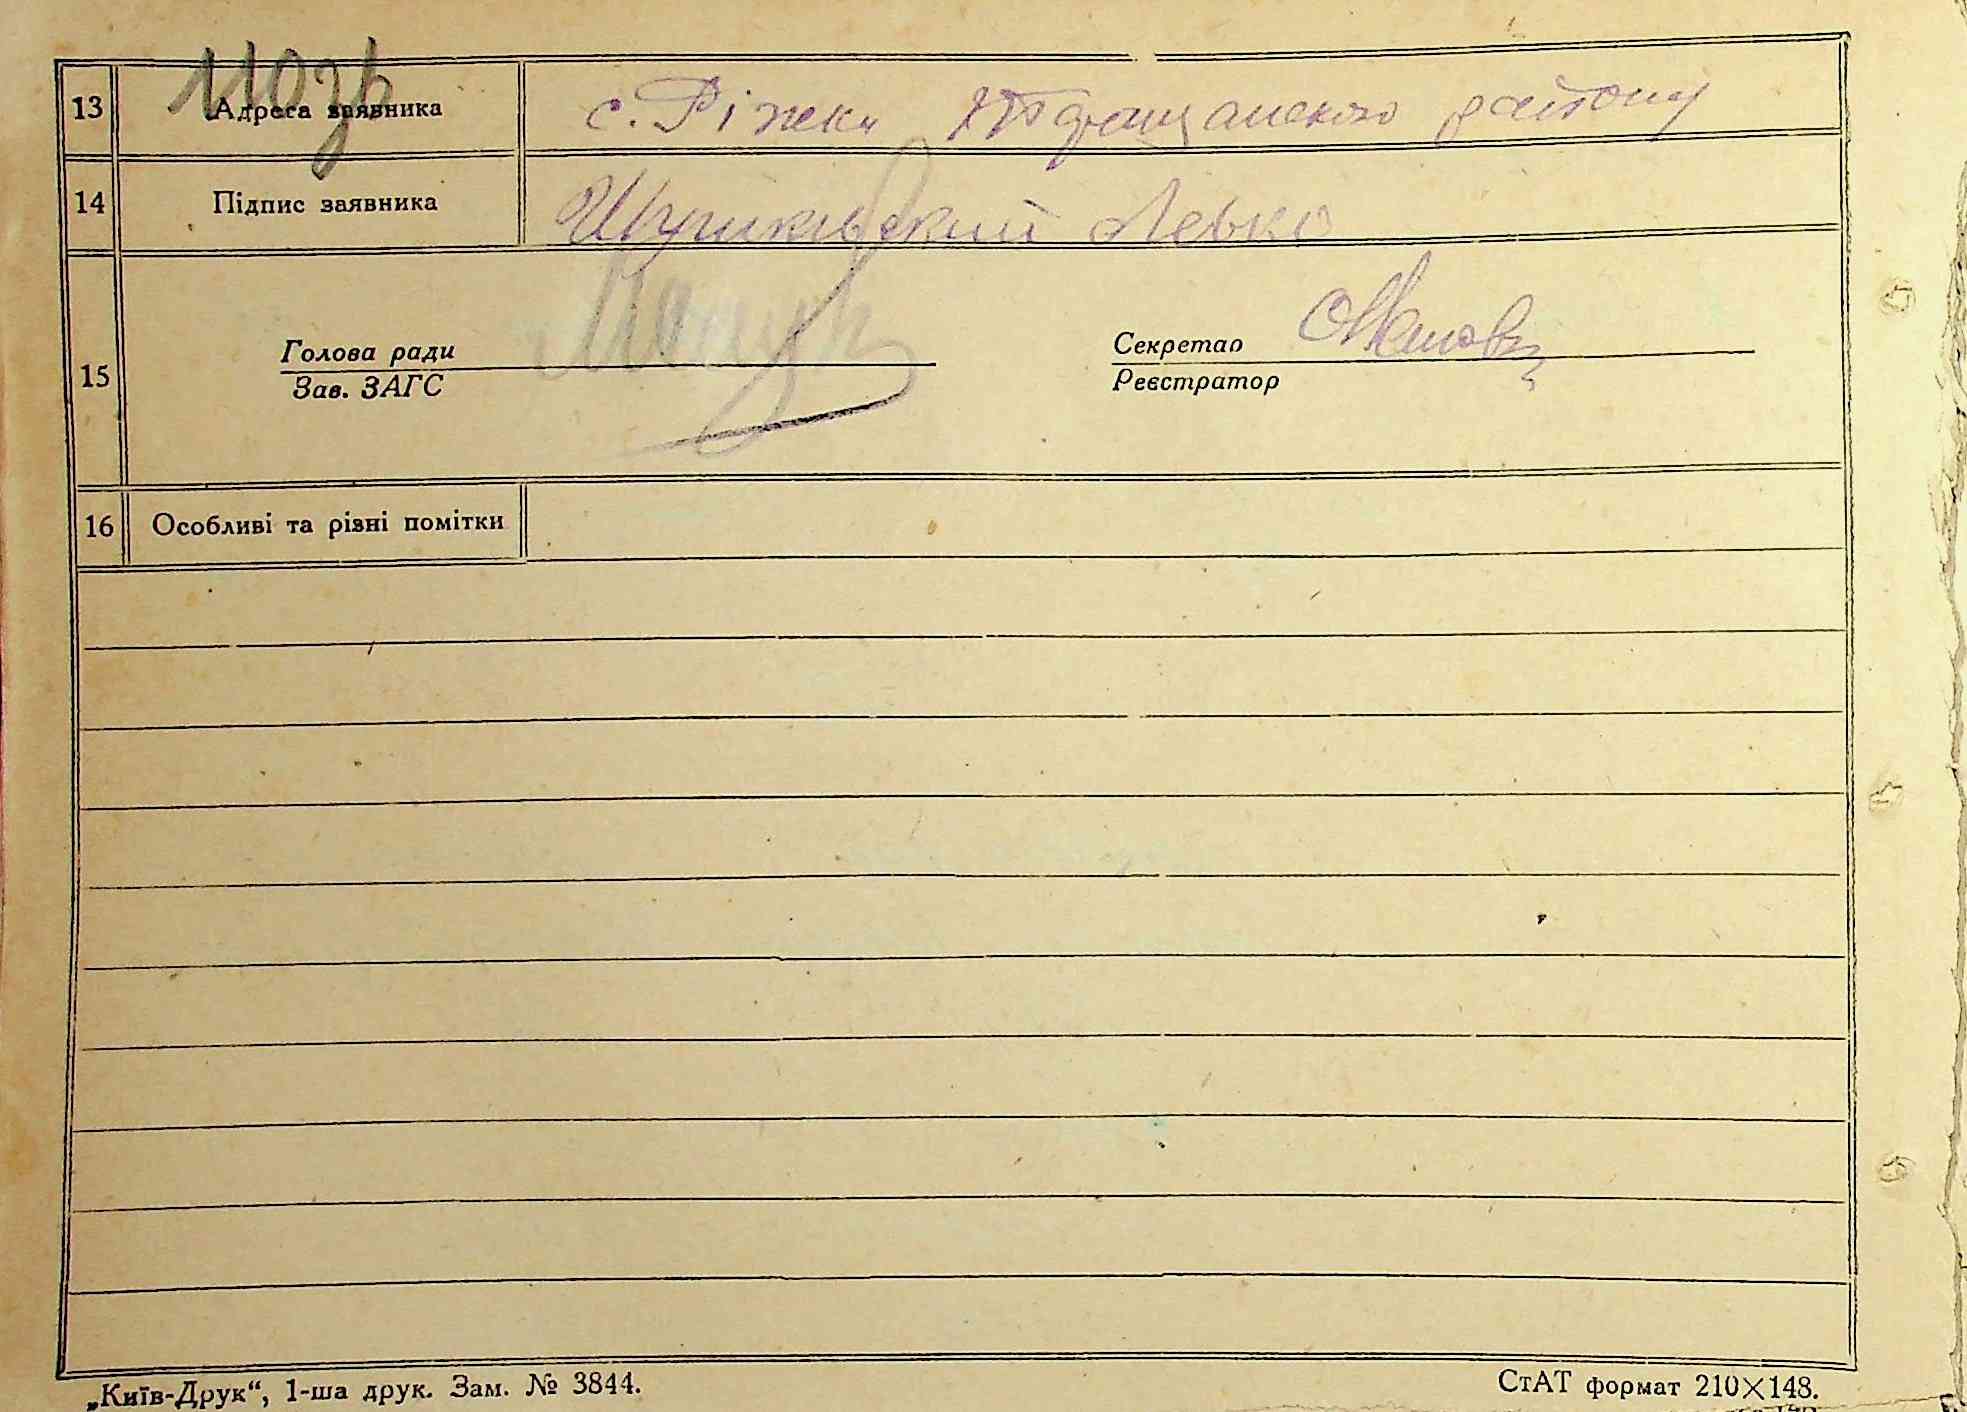 110 зв
13 Адреса заявника с. Ріжки Таращанського району
14 Підпис заявника Шушківський Левко
15 Голова ради Секретар
Зав. ЗАГС Реєстратор
16 Особливі та різні помітки
„Київ-Друк“, 1-ша друк. Зам. № 3844. СтАТ формат 210×148.